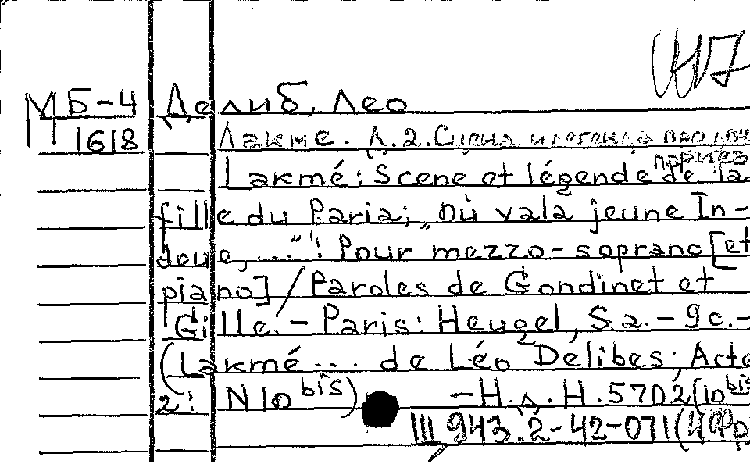 МБ-4 Делиб, Лео
1618 Лакме. Д.2. Сцена и легенда
париа
Lakmé: Scene et légende de la
fille du Paria; "Où va la jeune In-
doue,..."! Pour mezzo-soprano [et
piano] / Paroles de Gondinet et
Gille. - Paris: Heugel, S.a. - 9c.-
(Lakmé ... de Léo Delibes; Acte
2: N 10 bis) - Н.д. H.5702 (10 bis
III 943.2-42-071(